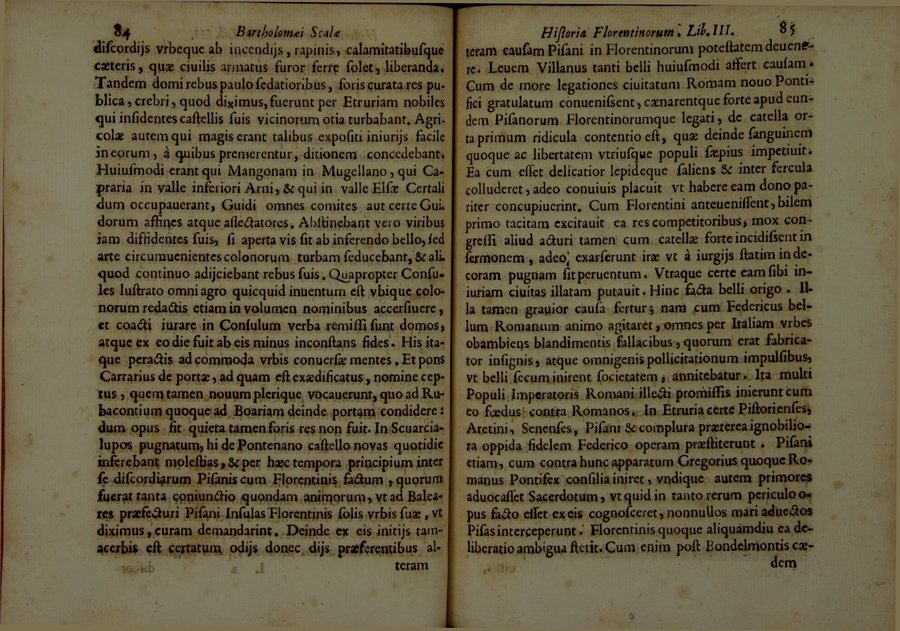 84 Bartholomæi Scalæ
discordijs vrbeque ab incendijs, rapinis, calamitatibusque
cæteris, quæ ciuilis armatus furor ferre solet, liberanda.
Tandem domi rebus paulo sedatioribus, foris curata res pu-
blica, crebri, quod diximus, fuerunt per Etruriam nobiles
qui insidentes castellis suis vicinorum otia turbabant. Agri-
colæ autem qui magis erant talibus expositi iniurijs facile
in eorum, à quibus premerentur, ditionem concedebant.
Huiusmodi erant qui Mangonam in Mugellano, qui Ca-
praria in valle inferiori Arni, & qui in valle Elsæ Certali
dum occupauerant, Guidi omnes comites aut certe Gui-
dorum affines atque assectatores. Abstinebant vero viribus
iam diffidentes suis, si aperta vis sit ab inferendo bello, sed
arte circumuenientes colonorum turbam seducebant, & ali-
quod continuo adijciebant rebus suis. Quapropter Consu-
les lustrato omni agro quicquid inuentum est vbique colo-
norum redactis etiam in volumen nominibus accersiuere,
et coacti iurare in Consulum verba remissi sunt domos,
atque ex eo die fuit ab eis minus inconstans fides. His ita-
que peractis ad commoda vrbis conuersæ mentes. Et pons
Carrarius de portæ, ad quam est exædificatus, nomine cep-
tus, quem tamen nouum plerique vocauerunt, quo ad Ru-
bacontium quoque ad Boariam deinde portam condidere:
dum opus fit quieta tamen foris res non fuit. In Scuarcia-
lupos pugnatum, hi de Pontenano castello novas quotidie
inferebant molestias, & per hæc tempora principium inter
se discordiarum Pisanis cum Florentinis factum, quorum
fuerat tanta coniunctio quondam animorum, vt ad Balea-
res præfecturi Pisani Insulas Florentinis solis vrbis suæ, vt
diximus, curam demandarint. Deinde ex eis initijs tam-
acerbis est certatum odijs donec dijs præferentibus al-
teram
Historia Florentinorum. Lib. III. 85
teram causam Pisani in Florentinorum potestatem deuene-
re. Leuem Villanus tanti belli huiusmodi affert causam.
Cum de more legationes ciuitatum Romam nouo Ponti-
fici gratulatum conuenissent, cænarentque forte apud eun-
dem Pisanorum Florentinorumque legati, de catella or-
ta primum ridicula contentio est, quæ deinde sanguinem
quoque ac libertatem vtriusque populi sæpius impetiuit.
Ea cum esset delicatior lepideque saliens & inter fercula
colluderet, adeo conuiuis placuit vt habere eam dono pa-
riter concupiuerint. Cum Florentini anteuenissent, bilem
primo tacitam excitauit ea res competitoribus, mox con-
gressi aliud acturi tamen cum catellæ forte incidissent in
sermonem, adeo exarserunt iræ vt à iurgijs statim in de-
coram pugnam sit peruentum. Vtraque certe eam sibi in-
iuriam ciuitas illatam putauit. Hinc facta belli origo. Il-
la tamen grauior causa fertur; nam cum Federicus bel-
lum Romanum animo agitaret, omnes per Italiam vrbes
obambiens blandimentis fallacibus, quorum erat fabrica-
tor insignis, atque omnigenis pollicitationum impulsibus,
vt belli secum inirent societatem, annitebatur. Ita multi
Populi Imperatoris Romani illecti promissis inierunt cum
eo fœdus contra Romanos. In Etruria certe Pistorienses,
Aretini, Senenses, Pisani & complura præterea ignobilio-
ra oppida fidelem Federico operam præstiterunt. Pisani
etiam, cum contra hunc apparatum Gregorius quoque Ro-
manus Pontifex consilia iniret, vndique autem primores
aduocasset Sacerdotum, vt quid in tanto rerum periculo o-
pus facto esset ex eis cognosceret, nonnullos mari aduectos
Pisas interceperunt. Florentinis quoque aliquamdiu ea de-
liberatio ambigua stetit. Cum enim post Bondelmontis cæ-
dem